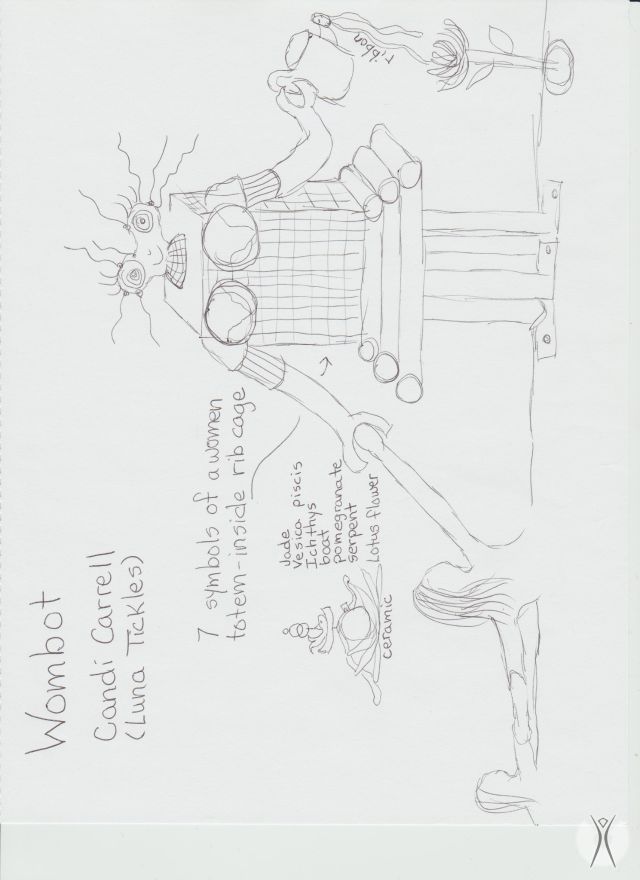 Wombot
Candi Carrell
(Luna Tickles)
7 symbols of a women
totem-inside rib cage
Jade
Vesica piscis
Ichthys
boat
pomegranate
serpent
Lotus flower
ceramic
ribbon